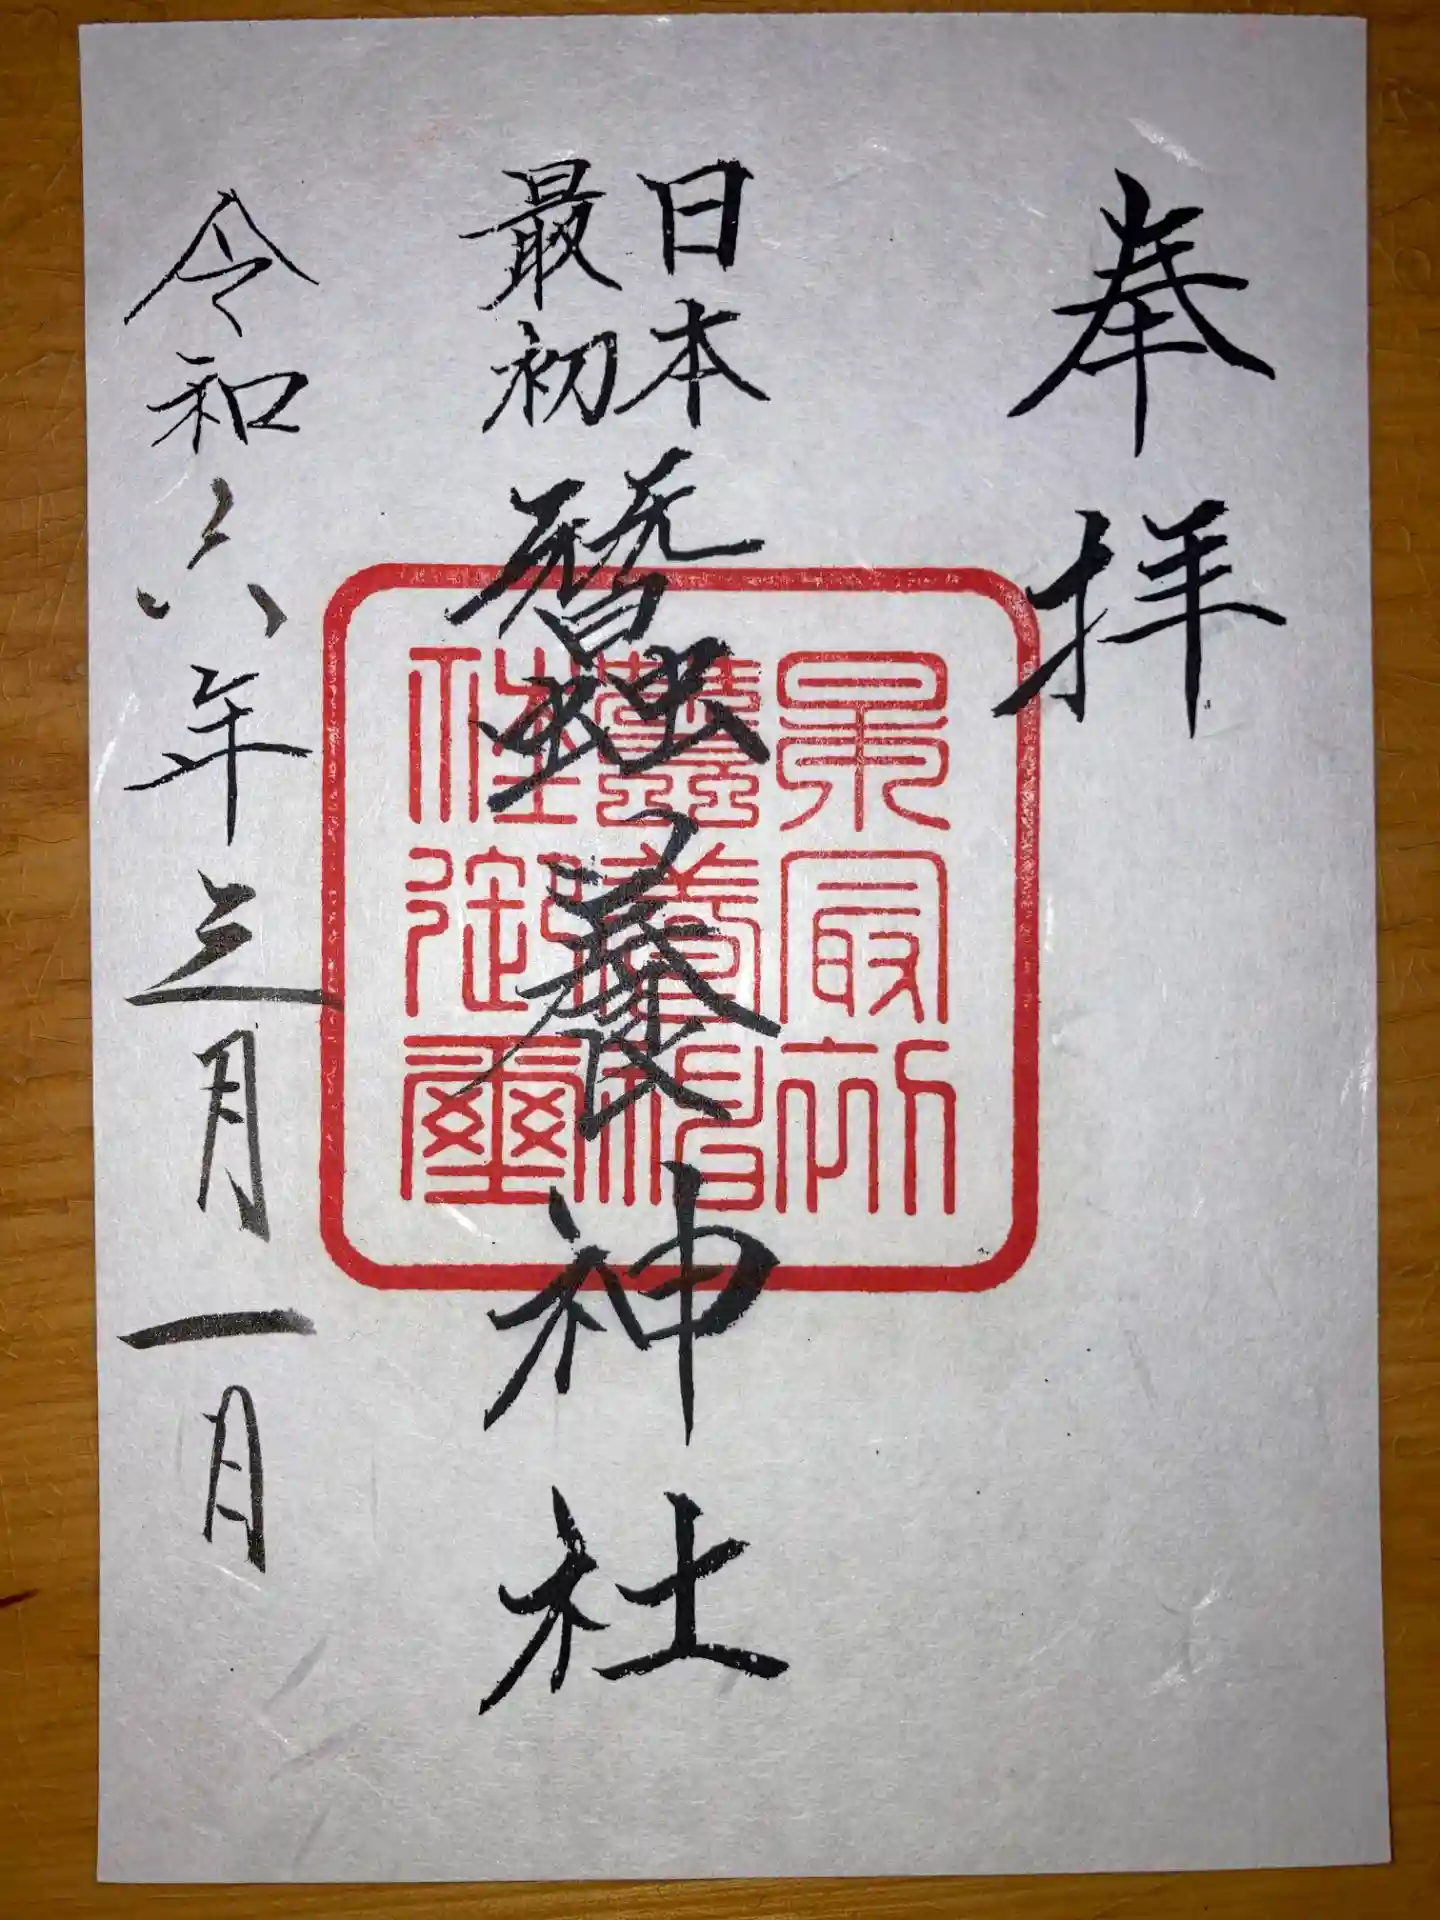 奉拝
日本
最初
蠶養神社
令和六年三月一日
日本最初
蠶養神
社御璽